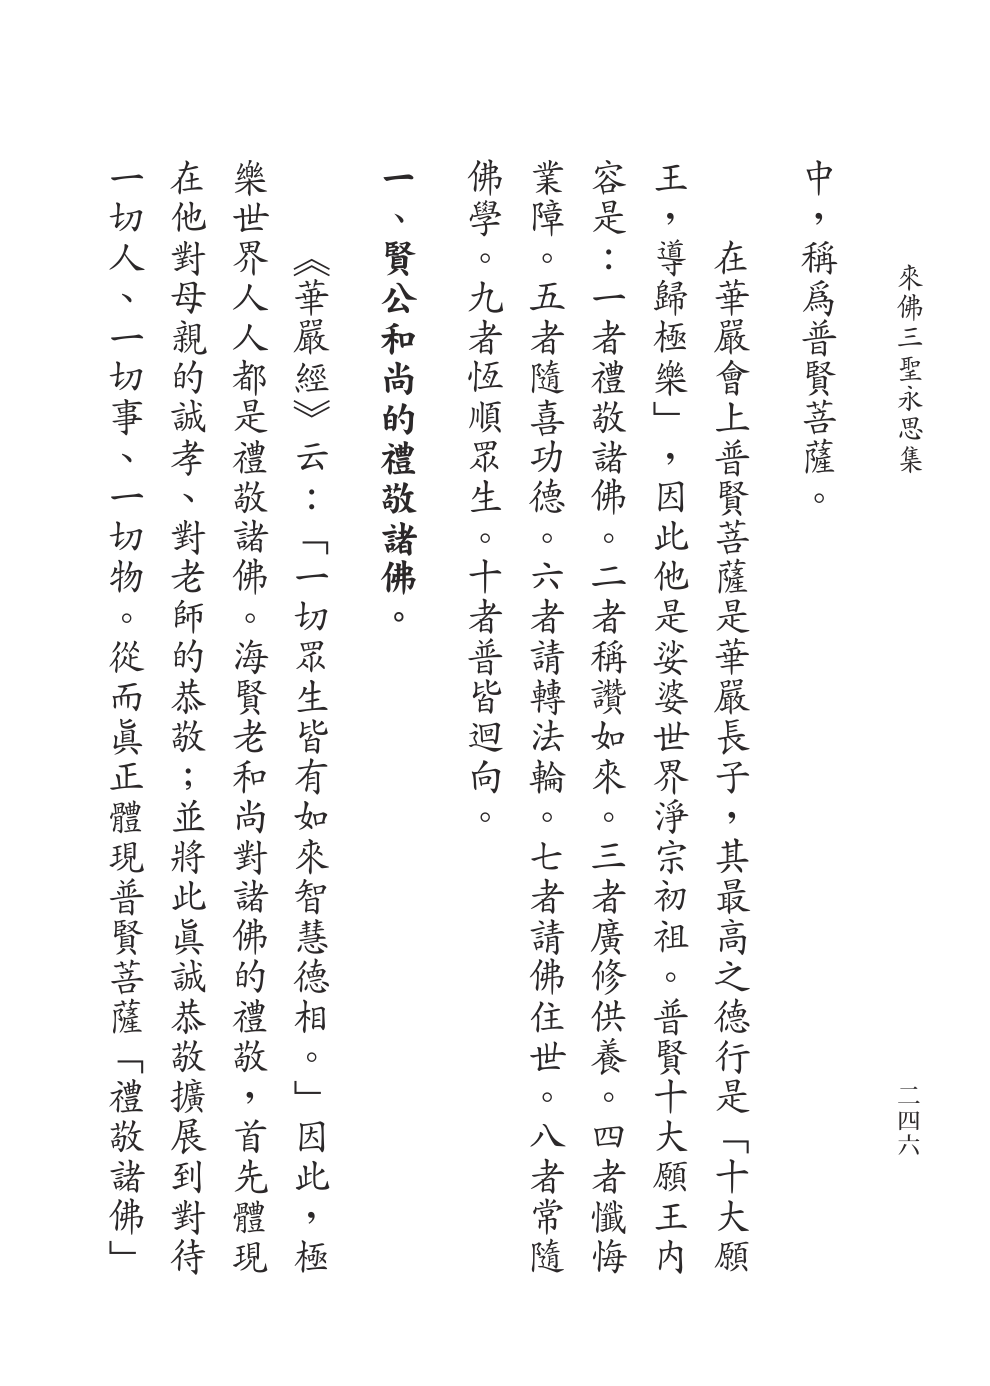 來佛三聖永思集
二四六
中，稱爲普賢菩薩。
在華嚴會上普賢菩薩是華嚴長子，其最高之德行是「十大願
王，導歸極樂」，因此他是娑婆世界淨宗初祖。普賢十大願王內
容是：一者禮敬諸佛。二者稱讚如來。三者廣修供養。四者懺悔
業障。五者隨喜功德。六者請轉法輪。七者請佛住世。八者常隨
佛學。九者恆順眾生。十者普皆迴向。
一、賢公和尚的禮敬諸佛。
《華嚴經》云：「一切眾生皆有如來智慧德相。」因此，極
樂世界人人都是禮敬諸佛。海賢老和尚對諸佛的禮敬，首先體現
在他對母親的誠孝、對老師的恭敬；並將此眞誠恭敬擴展到對待
一切人、一切事、一切物。從而眞正體現普賢菩薩「禮敬諸佛」